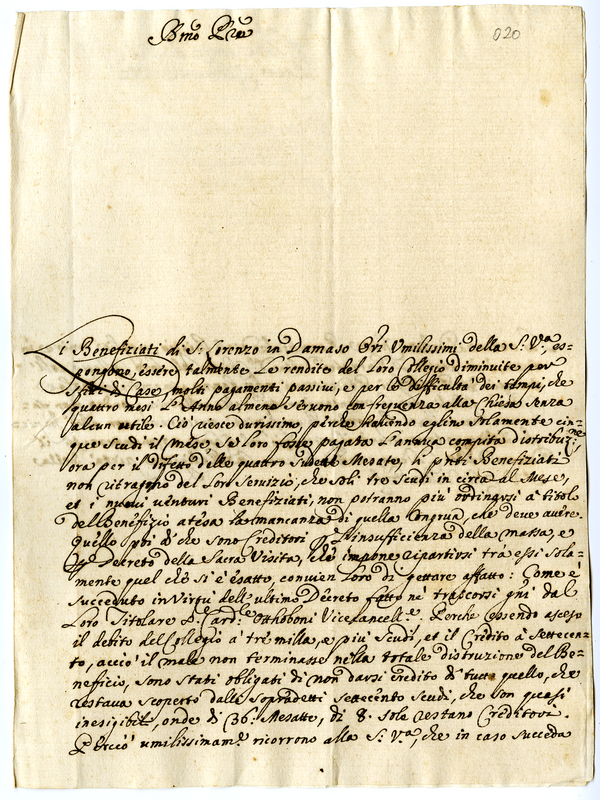 Bmo Pre
020
Li Benefiziati di S. Lorenzo in Damaso Ori Umilissimi della S. Va, es-
pongono, essere talmente Le rendite del Loro Collegio diminuite per
sfitti di Case, molti pagamenti passivi, e per le difficultà dei tempi, che
quattro mesi L'Anno almeno servono con frequenza alla Chiesa senza
alcun utile. Ciò riesce durissimo, perche havendo eglino solamente cin-
que scudi il mese, se Loro fosse pagata L'annua compita distribuzne,
ora per il difetto delle quattro Mesate, li pnti Benefiziati
non ritragono del Loro Servizio, che soli tre scudi in circa al Mese,
et i nuovi venturi Benefiziati, non potranno più ordinarsi à titol
del Benefizio atesa la mancanza di quella Congrua, che deve avere.
Quello poi di che sono Creditori p L'insufficienza della massa, e
p Decreto della Sacra Visita, che impone ripartirsi trà essi sola-
mente quel che si è esatto, convien Loro di gettare affatto: Come è
succeduto in Virtù dell'ultimo Decreto fatto ne' trascorsi gni dal
Loro Titolare S. Cardle Otthoboni Vicecancelle. Perche essendo asceso
il debito del Collegio à tre milla, e più scudi, et il Credito à settecen-
to, acciò il male non terminasse nella totale distruzione del Be-
neficio, sono stati obligati di non darsi credito di tutto quello, che
restava scoperto dalli sopradetti settecento scudi, che son quasi
inesigibili, onde di 36. Mesatte, di 8. sole restano Creditori.
Perciò umilissimame ricorrono alla S. Va, che in caso succeda